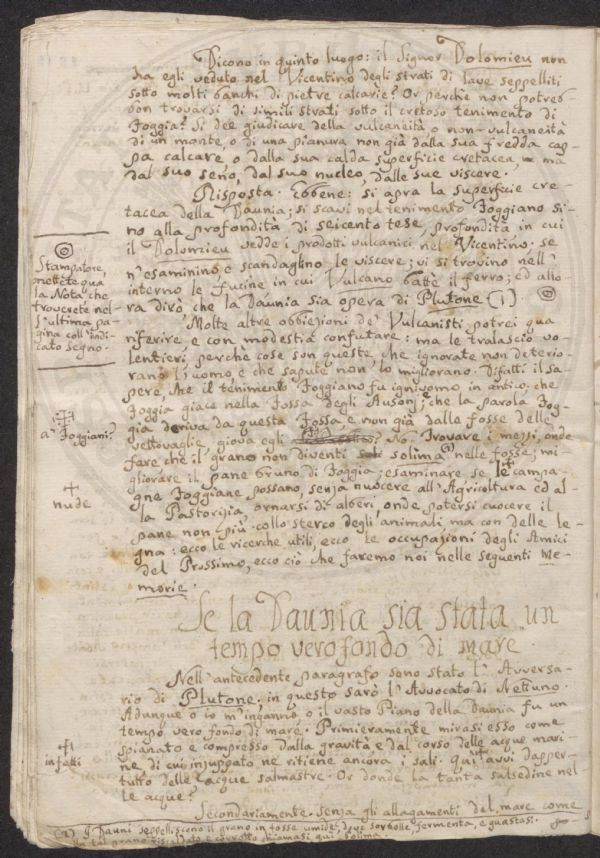 Dicono in quinto luogo: il Signor Dolomieu non
ha egli veduto nel Vicentino degli strati di lave seppelliti
sotto molti banchi di pietre calcarie? Or perchè non potreb-
bon trovarsi di simili strati sotto il cretoso tenimento di
Foggia? Si dee giudicare della vulcaneità o non-vulcaneità
di un monte, o di una pianura non già dalla sua fredda cap-
pa calcare o dalla sua calda superficie cretacea, ma
dal suo seno, dal suo nucleo, dalle sue viscere.
Risposta. Ebbene: si apra la superficie cre-
tacea della Daunia; si scavi nel tenimento Foggiano si-
no alla profondità di seicento tese, profondità, in cui
il Dolomieu vedde i prodotti vulcanici nel Vicentino; se
n'esaminino, e scandaglino le viscere; vi si trovino nell'
interno le fucine in cui Vulcano battè il ferro; ed allo-
ra dirò che la Daunia sia opera di Plutone (1).
Stampatore,
mettete qua
la Nota che
troverete nel-
l'ultima pa-
gina coll'indi-
cato segno.
Molte altre obbiezioni de' Vulcanisti potrei qua
riferire e con modestia confutare: ma le tralascio vo-
lentieri, perchè cose son queste, che ignorate non deterio-
rano l'uomo, e che sapute non lo migliorano. Difatti il sa-
pere, che il tenimento Foggiano fu ignivomo in antico; che
Foggia giace nella Fossa degli Ausonj; e che la parola Fog-
gia deriva da questa Fossa e non già dalle fosse delle
vettovaglie, giova egli No. Trovare i mezzi, onde
a' Foggiani?
fare che il grano non diventi solima nelle fosse; mi-
gliorare il pane bruno di Foggia; esaminare se le campa-
nude
gne Foggiane possano, senza nuocere all'Agricoltura ed al-
la Pastorizia, ornarsi di alberi, onde potersi cuocere il
pane non più collo sterco degli animali, ma con delle le-
gna: ecco le ricerche utili, ecco le occupazioni degli Amici
del Prossimo, ecco ciò che faremo noi nelle seguenti Me-
morie.
Se la Daunia sia stata un
tempo vero fondo di mare.
Nell'antecedente paragrafo sono stato l'Avversa-
rio di Plutone; in questo sarò l'Avvocato di Nettuno.
Adunque o io m'inganno, o il vasto Piano della Daunia fu un
tempo vero fondo di mare. Primieramente mirasi esso come
spianato e compresso dalla gravità e dal corso delle acque mari-
infatti
ne di cui inzuppato ne ritiene ancora i sali. Qui avvi dapper-
tutto delle acque salmastre. Or donde la tanta salsedine nel-
le acque?
Secondariamente. Senza gli allagamenti del mare come
(1) I Dauni seppelliscono il grano in fosse umide, dove sorbolle, fermenta, e guastasi.
tal grano e corrotto chiamasi qui Solima.